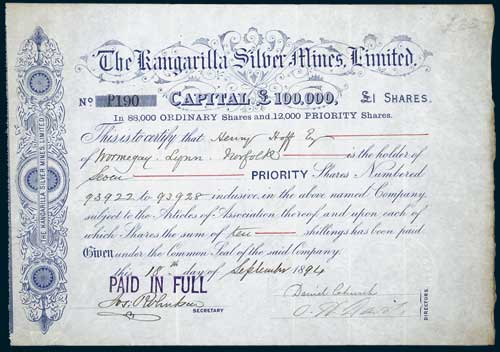 The Kangarilla Silver Mines, Limited.
No P190 CAPITAL £100,000, £1 SHARES.
In 88,000 ORDINARY Shares and 12,000 PRIORITY Shares.
This is to certify that Henry Hoff Esq
of Wormegay Lynn Norfolk is the holder of
Seven PRIORITY Shares Numbered
93922 to 93928 inclusive, in the above named Company,
subject to the Articles of Association thereof and upon each of
which Shares the sum of ten shillings has been paid
Given under the Common Seal of the said Company.
the 18th day of September 1894
PAID IN FULL
SECRETARY
Daniel Church
DIRECTORS.
THE KANGARILLA SILVER MINES LIMITED